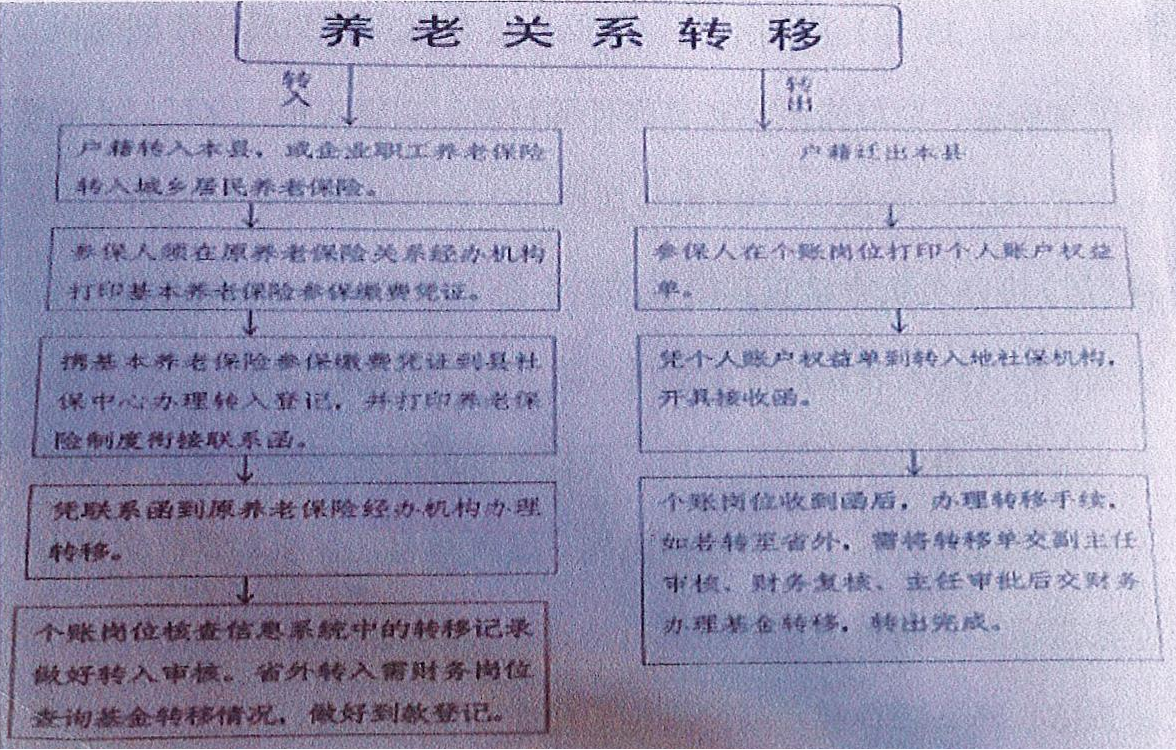 养老关系转移
转入
户籍转入本县，或企业职工养老保险
转入城乡居民养老保险。
参保人须在原养老保险关系经办机构
打印基本养老保险参保缴费凭证。
携基本养老保险参保缴费凭证到县社
保中心办理转入登记，并打印养老保
险制度衔接联系函。
凭联系函到原养老保险经办机构办理
转移。
个账岗位核查信息系统中的转移记录
做好转入审核。省外转入需财务岗位
查询基金转移情况，做好到款登记。
转出
户籍迁出本县
参保人在个账岗位打印个人账户权益
单。
凭个人账户权益单到转入地社保机构，
开具接收函。
个账岗位收到函后，办理转移手续，
如若转至省外，需将转移单交副主任
审核、财务复核、主任审批后交财务
办理基金转移，转出完成。